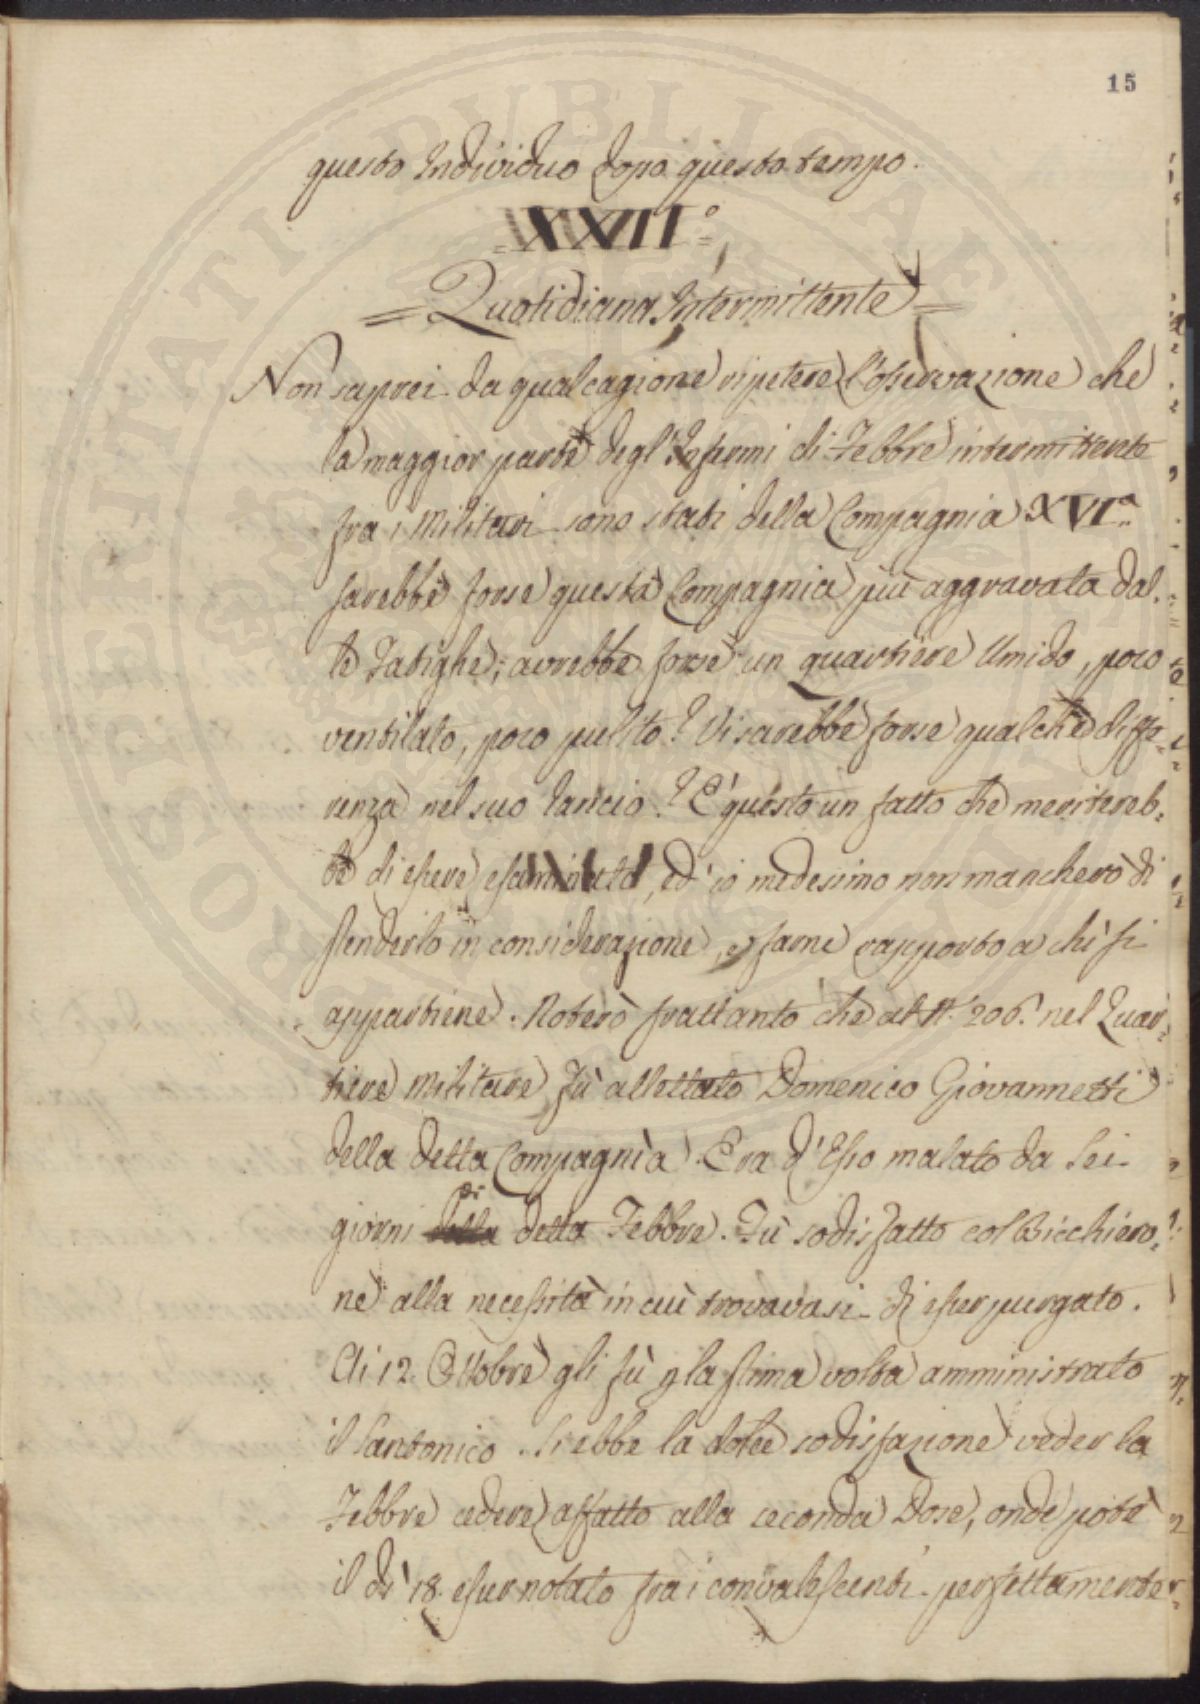 15
questo Individuo dopo questo tempo.
=XXII°=
=Quotidiana Intermittente=
Non saprei da qual cagione ripetere l'osservazione che
la maggior parte degl'Infermi di Febbre intermittente
fra i Militari sono stati della Compagnia XVI.a
sarebbe forse questa Compagnia più aggravata dal.
le Fatighe; avrebbe forse un quartiere Umido, poco
ventilato, poco pulito? Vi sarebbe forse qualche diffe=
renza nel suo Rancio? E' questo un fatto che meritereb=
be di essere esaminato, ed'io medesimo non mancherò di
prenderlo in considerazione, e farne rapporto a chi si
appartiene. Noterò frattanto che al N. 206. nel Quar=
tiere Militare fù allettato Domenico Giovannetti
della detta Compagnia. Era d'Esso malato da Sei
giorni della di detta Febbre. Fù sodisfatto col Bicchiero=
ne alla necessità in cui trovavasi di esser purgato.
Ai 12. Ottobre gli fù p la prima volta amministrato
il Santonico. Si ebbe la dolce sodisfazione veder la
Febbre cedere affatto alla seconda Dose, onde potè
il dì 18. esser notato fra i convalescenti perfettamente